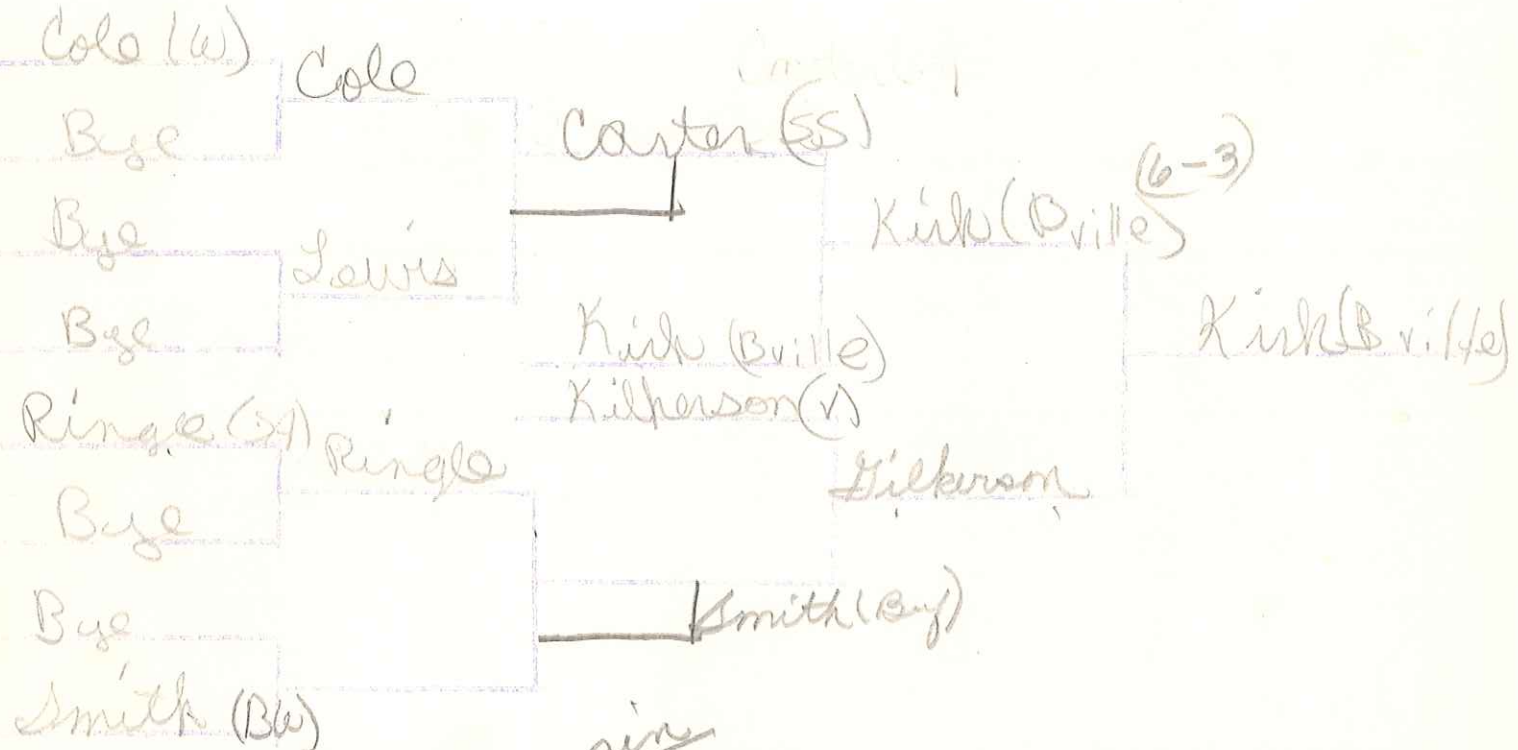 Cole (W)
Bye
Bye
Bye
Ringle
Bye
Bye
Smith (BW)
Cole
Lewis
Ringle
Carter (SS)
Kirk (Bville)
Kilkerson (V)
Smith
Kirk (Bville) (6-3)
Gilkerson
Kirk (Bville)